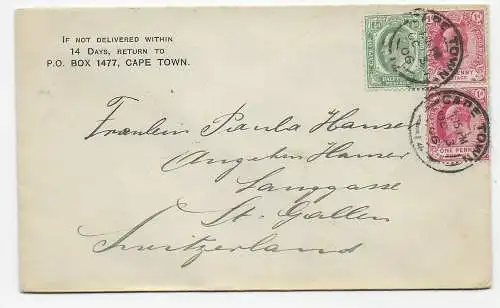 IF NOT DELIVERED WITHIN
14 DAYS, RETURN TO
P.O. BOX 1477, CAPE TOWN.
CAPE TOWN
HALF
ONE PENNY
CAPE TOWN
Fraulein Paula Hauser
Langgasse
St. Gallen
Switzerland